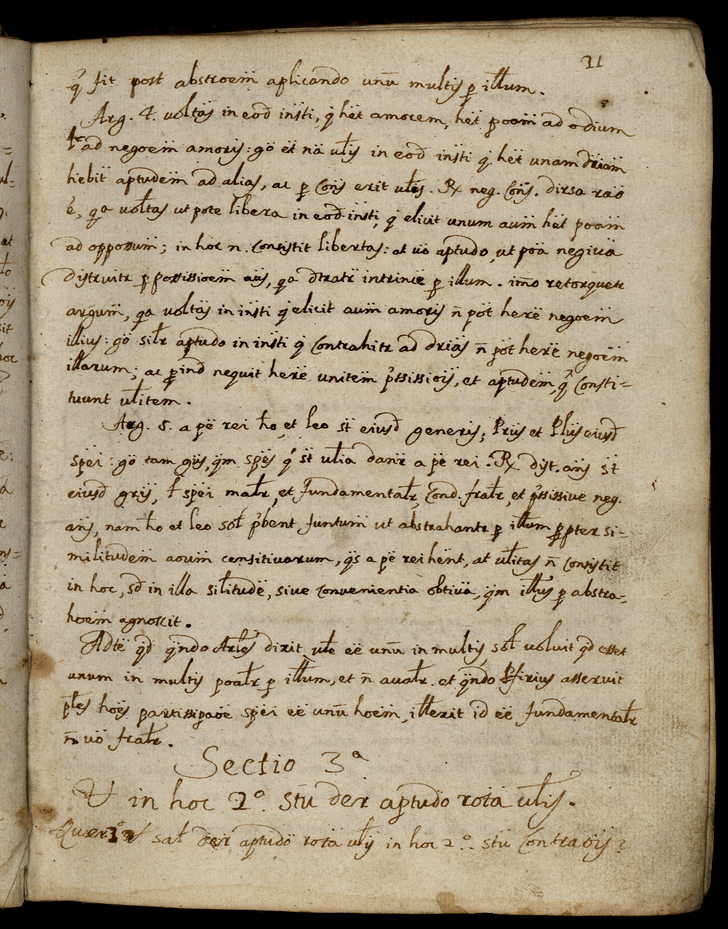 11
q̃ fit post abstroem̃ aplicando unũ multis p illum.
Arg. 4. voltas in eod insti, q het amorem, het poam ad odium
ł ad negoem amoris: go et na ulis in eod insti q. het unam driam
hebit aptudem ad alias, ac p cons erit ules. Rx neg. Cons. dirsa rao
é, qa voltas ut pote libera in eod insti, q elicit unum aum het poam
ad oppossum; in hoc n. consistit libertas: at uo aptudo, ut poa negiua
distruitr p possissioem ais, qa dtratr intrince p illum. imo retorquetr
argum, qa voltas in insti q elicit aum amoris ñ pot here negoem
illius: go silr aptudo in insti q contrahitr ad drias ñ pot here negoem
illarum; ac pind nequit here unitem pssissiois, et aptudem, q consti=
tuunt ulitem.
Arg. 5. a pe rei ho, et leo st eiusd generis; Prus et Plus eiusd
spei: go tam gus, qm spes q st ulia danr a pe rei. Rx dist. ans st
eiusd gris, ł spei malr, et fundamentalr, Cond. fralr, et pssissive neg.
ans, nam ho et leo sol pbent funtum ut abstrahantr p illum ppter si=
militudem aoum censitiuarum, qs a pe rei hent, at ulitas ñ consistit
in hoc, sd in illa silitude, siue conuenientia obtiua, qm illus p abstra=
hoem agnoscit.
Adte qd qndo Arles dixit, ule eé unũ in multis, sol voluit qd esset
unum in multis poalr p illum, et ñ aualr. et qndo Pfirius asseruit
ples hoes partissipaoe spei eé unũ hoem, illexit id eé fundamentalr
ñ uo fralr.
Sectio 3ª
V in hoc 2º. stu der aptudo rota ulis.
Quer 3º V sal der aptudo rota ulis in hoc 2º. stu contraois?